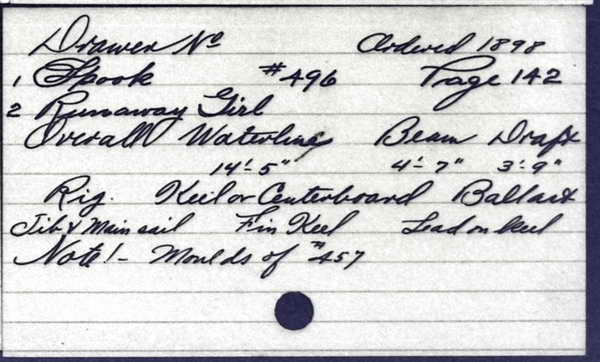 Drawer No Ordered 1898
1 Spook #496 Page 142
2 Runaway Girl
Overall Waterline Beam Draft
14'-5" 4'-7" 3'-9"
Rig. Keel or Centerboard Ballast
Jib & Mainsail Fin Keel Lead on keel
Note!- Moulds of #457